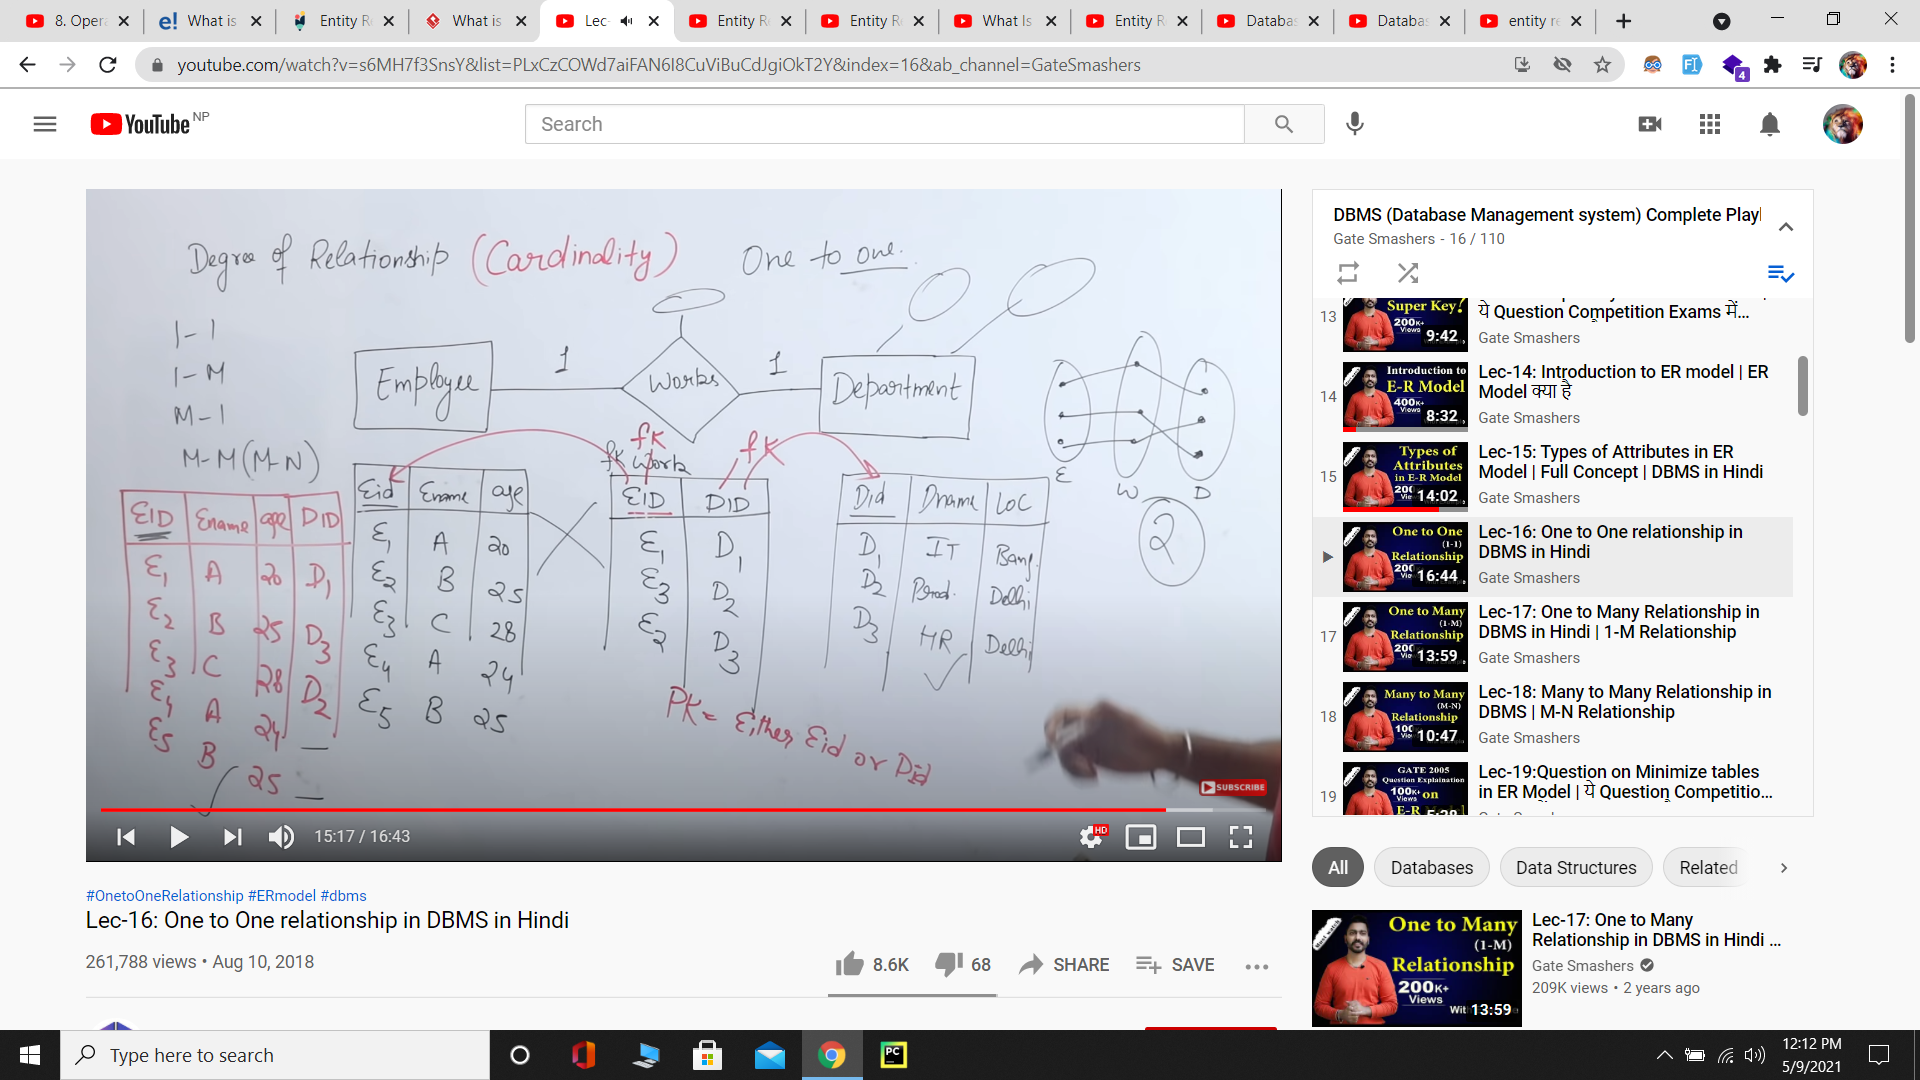 8. Opera
What is
Entity R
What is
Lec-
Entity R
Entity R
What Is
Entity R
Databa
Databa
entity re
youtube.com/watch?v=s6MH7f3SnsY&list=PLxCzCOWd7aiFAN6I8CuViBuCdJgiOkT2Y&index=16&ab_channel=GateSmashers
4
YouTube NP
Search
Degree of Relationship (Cardinality) One to one.
1-1
1-M
M-1
M-M (M-N)
Employee 1 Works 1 Department
fk fk
fk Work
E W D
2
EID Ename age DID
E1 A 20 D1
E2 B 25 D3
E3 C 28 D2
E4 A 24 —
E5 B 25 —
Eid Ename age
E1 A 20
E2 B 25
E3 C 28
E4 A 24
E5 B 25
EID DID
E1 D1
E3 D2
E2 D3
Did Dname Loc
D1 IT Bang.
D2 Prod. Delhi
D3 HR Delhi
PK = Either Eid or Did
SUBSCRIBE
15:17 / 16:43
HD
#OnetoOneRelationship #ERmodel #dbms
Lec-16: One to One relationship in DBMS in Hindi
261,788 views • Aug 10, 2018
8.6K 68 SHARE SAVE
DBMS (Database Management system) Complete Playl
Gate Smashers - 16 / 110
13
Super Key?
200K+
Views
9:42
ये Question Competition Exams में...
Gate Smashers
14
Introduction to
E-R Model
400K+
8:32
Lec-14: Introduction to ER model | ER
Model क्या है
Gate Smashers
15
Types of
Attributes
in E-R Model
14:02
Lec-15: Types of Attributes in ER
Model | Full Concept | DBMS in Hindi
Gate Smashers
One to One
(1-1)
Relationship
16:44
Lec-16: One to One relationship in
DBMS in Hindi
Gate Smashers
17
One to Many
(1-M)
Relationship
13:59
Lec-17: One to Many Relationship in
DBMS in Hindi | 1-M Relationship
Gate Smashers
18
Many to Many
(M-N)
Relationship
10:47
Lec-18: Many to Many Relationship in
DBMS | M-N Relationship
Gate Smashers
19
GATE 2005
Question Explaination
100K+
Views
on
Lec-19:Question on Minimize tables
in ER Model | ये Question Competitio...
All Databases Data Structures Related
One to Many
(1-M)
Relationship
200K+
Views
13:59
Lec-17: One to Many
Relationship in DBMS in Hindi ...
Gate Smashers
209K views • 2 years ago
Type here to search
PC
12:12 PM
5/9/2021